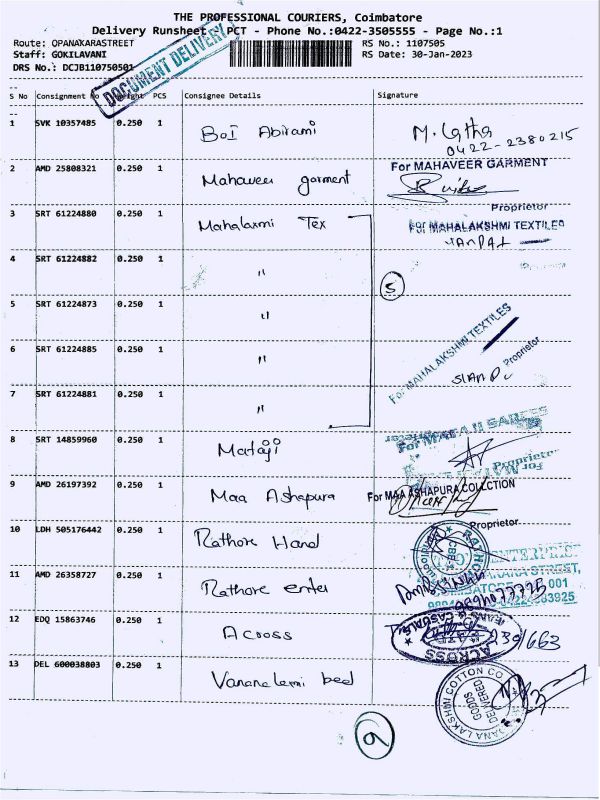 THE PROFESSIONAL COURIERS, Coimbatore
Delivery Runsheet - PCT - Phone No.:0422-3505555 - Page No.:1
Route: OPANAKARASTREET RS No.: 1107505
Staff: GOKILAVANI RS Date: 30-Jan-2023
DRS No.: DCJB110750501
DOCUMENT DELIVERY
S No Consignment No Weight PCS Consignee Details Signature
1 SVK 10357485 0.250 1 BOI Abirami M. Latha
0422-2380215
2 AMD 25808321 0.250 1 Mahaveer garment For MAHAVEER GARMENT
Proprietor
3 SRT 61224880 0.250 1 Mahalaxmi Tex For MAHALAKSHMI TEXTILES
4 SRT 61224882 0.250 1 "
5
5 SRT 61224873 0.250 1 "
For MAHALAKSHMI TEXTILES
Proprietor
6 SRT 61224885 0.250 1 "
7 SRT 61224881 0.250 1 "
8 SRT 14859960 0.250 1 Mataji
Proprietor
9 AMD 26197392 0.250 1 Maa Ashapura For MAA ASHAPURA COLLCTION
Proprietor
10 LDH 505176442 0.250 1 Rathore Hand
11 AMD 26358727 0.250 1 Rathore enter
12 EDQ 15863746 0.250 1 Across ACROSS
JEANS & CASUALS
13 DEL 600038803 0.250 1
LAKSHMI COTTON CO
GOODS
DELIVERED
9